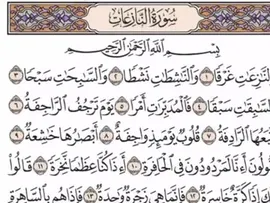 سُورَةُ النَّازِعَاتِ
بِسْمِ اللَّهِ الرَّحْمَٰنِ الرَّحِيمِ
لنَّٰزِعَٰتِ غَرْقًا ١ وَالنَّٰشِطَٰتِ نَشْطًا ٢ وَالسَّٰبِحَٰتِ سَبْحًا ٣
لسَّٰبِقَٰتِ سَبْقًا ٤ فَالْمُدَبِّرَٰتِ أَمْرًا ٥ يَوْمَ تَرْجُفُ الرَّاجِفَةُ ٦
بَعُهَا الرَّادِفَةُ ٧ قُلُوبٌ يَوْمَئِذٍ وَاجِفَةٌ ٨ أَبْصَٰرُهَا خَٰشِعَةٌ ٩
قُولُونَ أَءِنَّا لَمَرْدُودُونَ فِي الْحَافِرَةِ ١٠ أَءِذَا كُنَّا عِظَٰمًا نَّخِرَةً ١١ قَالُوا
كَ إِذًا كَرَّةٌ خَاسِرَةٌ ١٢ فَإِنَّمَا هِيَ زَجْرَةٌ وَٰحِدَةٌ ١٣ فَإِذَا هُم بِالسَّاهِرَةِ